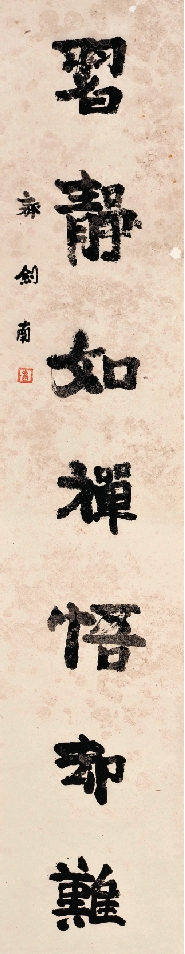 習靜如禪悟却難
齊劍南